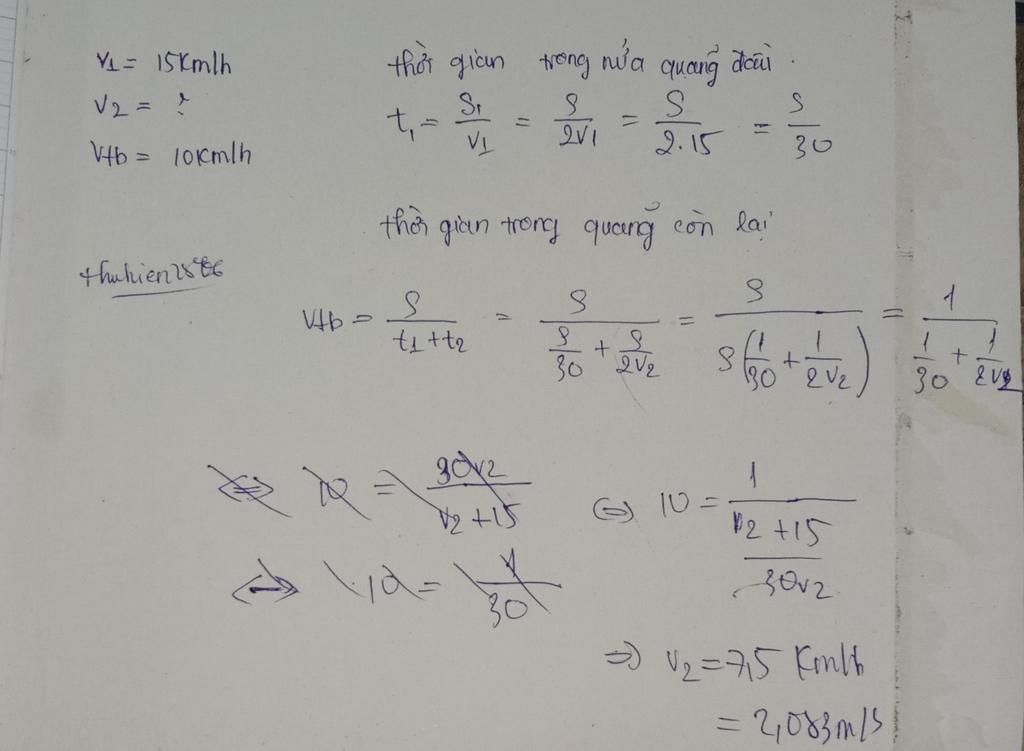 V1 = 15Km/h
V2 = ?
Vtb = 10Km/h
thời gian trong nửa quảng đầu.
t₁ = S₁/V1 = S/2V1 = S/2.15 = S/30
thời gian trong quảng còn lại
thuhien2586
Vtb = S/(t1+t2) = S/(S/30 + S/2V2) = S/(S(1/30 + 1/2V2)) = 1/(1/30 + 1/2V2)
⇔ 10 = 30V2/(V2+15)
⇔ 10 = 1/30
⇔ 10 = 1/((V2+15)/30V2)
⇒ V2 = 7,5 Km/h
= 2,083m/s